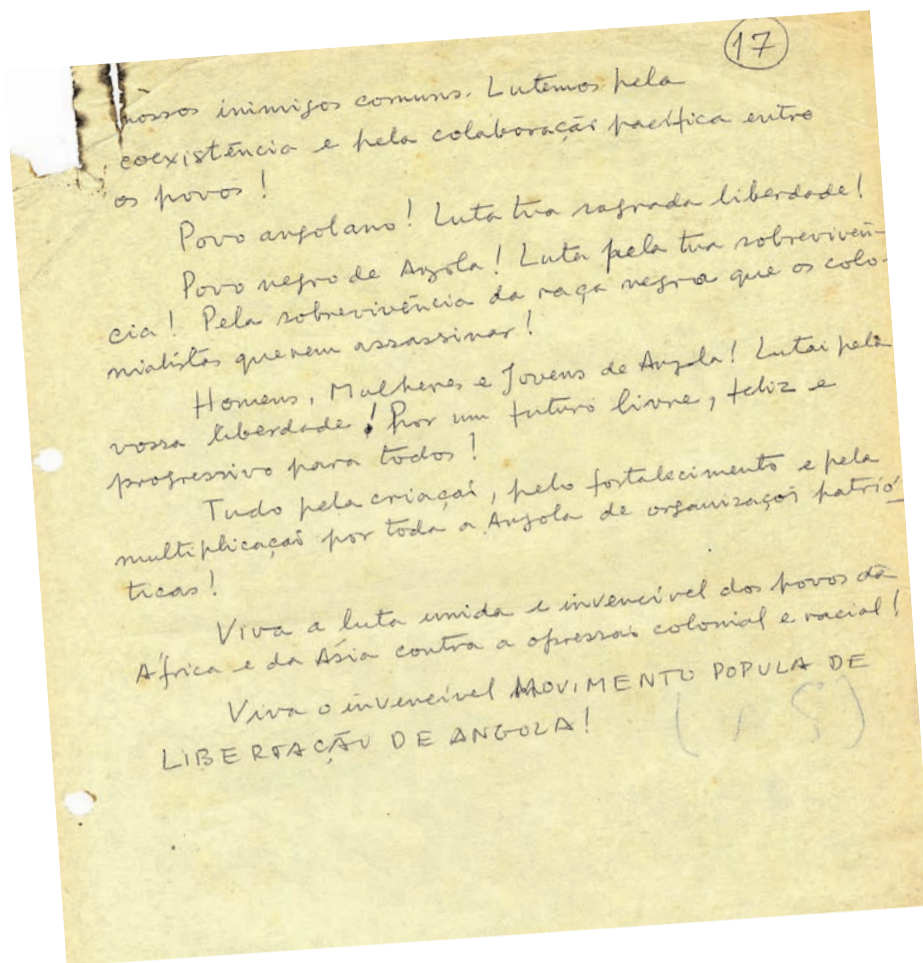 17
nossos inimigos comuns. Lutemos pela
coexistência e pela colaboração pacífica entre
os povos!
Povo angolano! Luta tua sagrada liberdade!
Povo negro de Angola! Luta pela tua sobrevivên-
cia! Pela sobrevivência da raça negra que os colo-
nialistas querem assassinar!
Homens, Mulheres e Jovens de Angola! Lutai pela
vossa liberdade! Por um futuro livre, feliz e
progressivo para todos!
Tudo pela criação, pelo fortalecimento e pela
multiplicação por toda a Angola de organizaçoi patrió-
ticas!
Viva a luta unida e invencível dos povos da
África e da Ásia contra a opressão colonial e racial!
Viva o invencível MOVIMENTO POPULA DE
LIBERTAÇÃO DE ANGOLA!